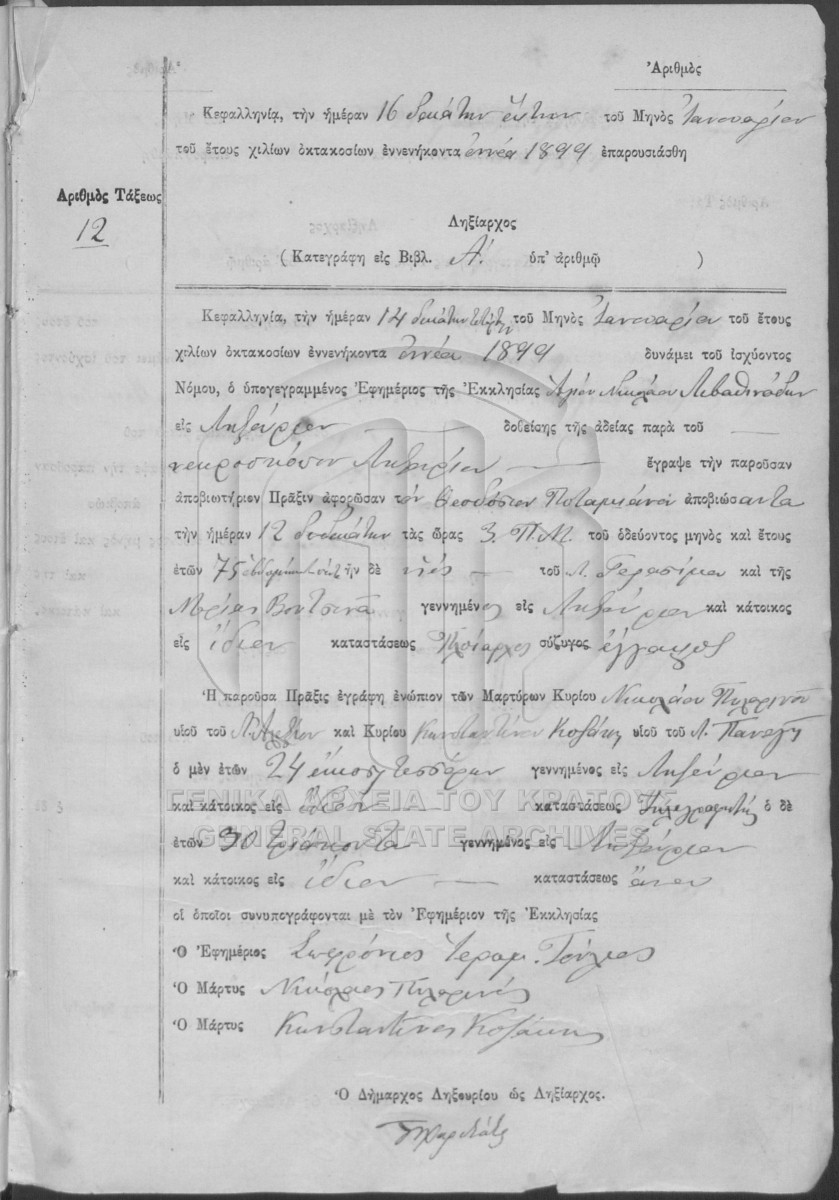 Ἀριθμὸς
Κεφαλληνίᾳ, τὴν ἡμέραν 16 δεκάτην ἕκτην τοῦ Μηνὸς Ἰανουαρίου
τοῦ ἔτους χιλίων ὀκτακοσίων ἐννενήκοντα ἐννέα 1899 ἐπαρουσιάσθη
Ἀριθμὸς Τάξεως
12
Ληξίαρχος
(Κατεγράφη εἰς Βιβλ. Α΄. ὑπ' ἀριθμῷ )
Κεφαλληνίᾳ, τὴν ἡμέραν 14 δεκάτην τετάρτην τοῦ Μηνὸς Ἰανουαρίου τοῦ ἔτους
χιλίων ὀκτακοσίων ἐννενήκοντα ἐννέα 1899 δυνάμει τοῦ ἰσχύοντος
Νόμου, ὁ ὑπογεγραμμένος Ἐφημέριος τῆς Ἐκκλησίας Ἁγίου Νικολάου
εἰς Ληξούριον — δοθείσης τῆς ἀδείας παρὰ τοῦ —
νεκροσκόπου Ληξουρίου — ἔγραψε τὴν παροῦσαν
ἀποβιωτήριον Πρᾶξιν ἀφορῶσαν τὸν Θεοδόσιον Ποταμιάνον ἀποβιώσαντα
τὴν ἡμέραν 12 δωδεκάτην τὰς ὥρας 3 Π.Μ. τοῦ ὁδεύοντος μηνὸς καὶ ἔτους
ἐτῶν 75 ἑβδομήκοντα πέντε ἦν δὲ υἱός — τοῦ Λ. Γερασίμου καὶ τῆς
Μαρίας Βουτσινᾶ γεννημένος εἰς Ληξούριον καὶ κάτοικος
εἰς ἴδιον καταστάσεως Πλοίαρχος σύζυγος ἔγγαμος
Ἡ παροῦσα Πρᾶξις ἐγράφη ἐνώπιον τῶν Μαρτύρων Κυρίου Νικολάου Πυλαρινοῦ
υἱοῦ τοῦ καὶ Κυρίου Κωνσταντίνου Κοζάκη υἱοῦ τοῦ Λ. Παναγῆ
ὁ μὲν ἐτῶν 24 εἴκοσι τεσσάρων γεννημένος εἰς Ληξούριον
καὶ κάτοικος εἰς ἴδιον — καταστάσεως τηλεγραφητής ὁ δὲ
ἐτῶν 30 τριάκοντα γεννημένος εἰς Ληξούριον
καὶ κάτοικος εἰς ἴδιον — καταστάσεως
οἱ ὁποῖοι συνυπογράφονται μὲ τὸν Ἐφημέριον τῆς Ἐκκλησίας
Ὁ Ἐφημέριος Σωφρόνιος Ἱερομ.
Ὁ Μάρτυς Νικόλαος Πυλαρινός
Ὁ Μάρτυς Κωνσταντίνος Κοζάκης
Ὁ Δήμαρχος Ληξουρίου ὡς Ληξίαρχος.
ΓΕΝΙΚΑ ΑΡΧΕΙΑ ΤΟΥ ΚΡΑΤΟΥΣ
GENERAL STATE ARCHIVES